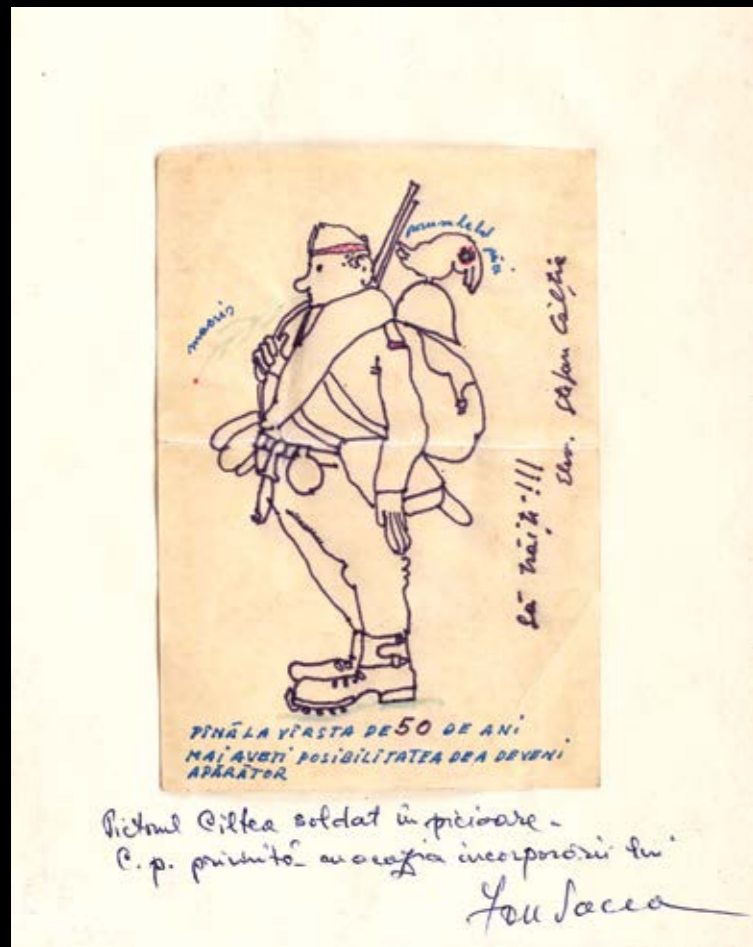 macriș
porumbelul păcii
Elev. Ștefan Câlția
Să trăiți!!!
PÎNĂ LA VÎRSTA DE 50 DE ANI
MAI AVEȚI POSIBILITATEA DE A DEVENI
APĂRĂTOR
Pictorul Cîlția soldat în picioare –
C.p. primită cu ocazia incorporării lui